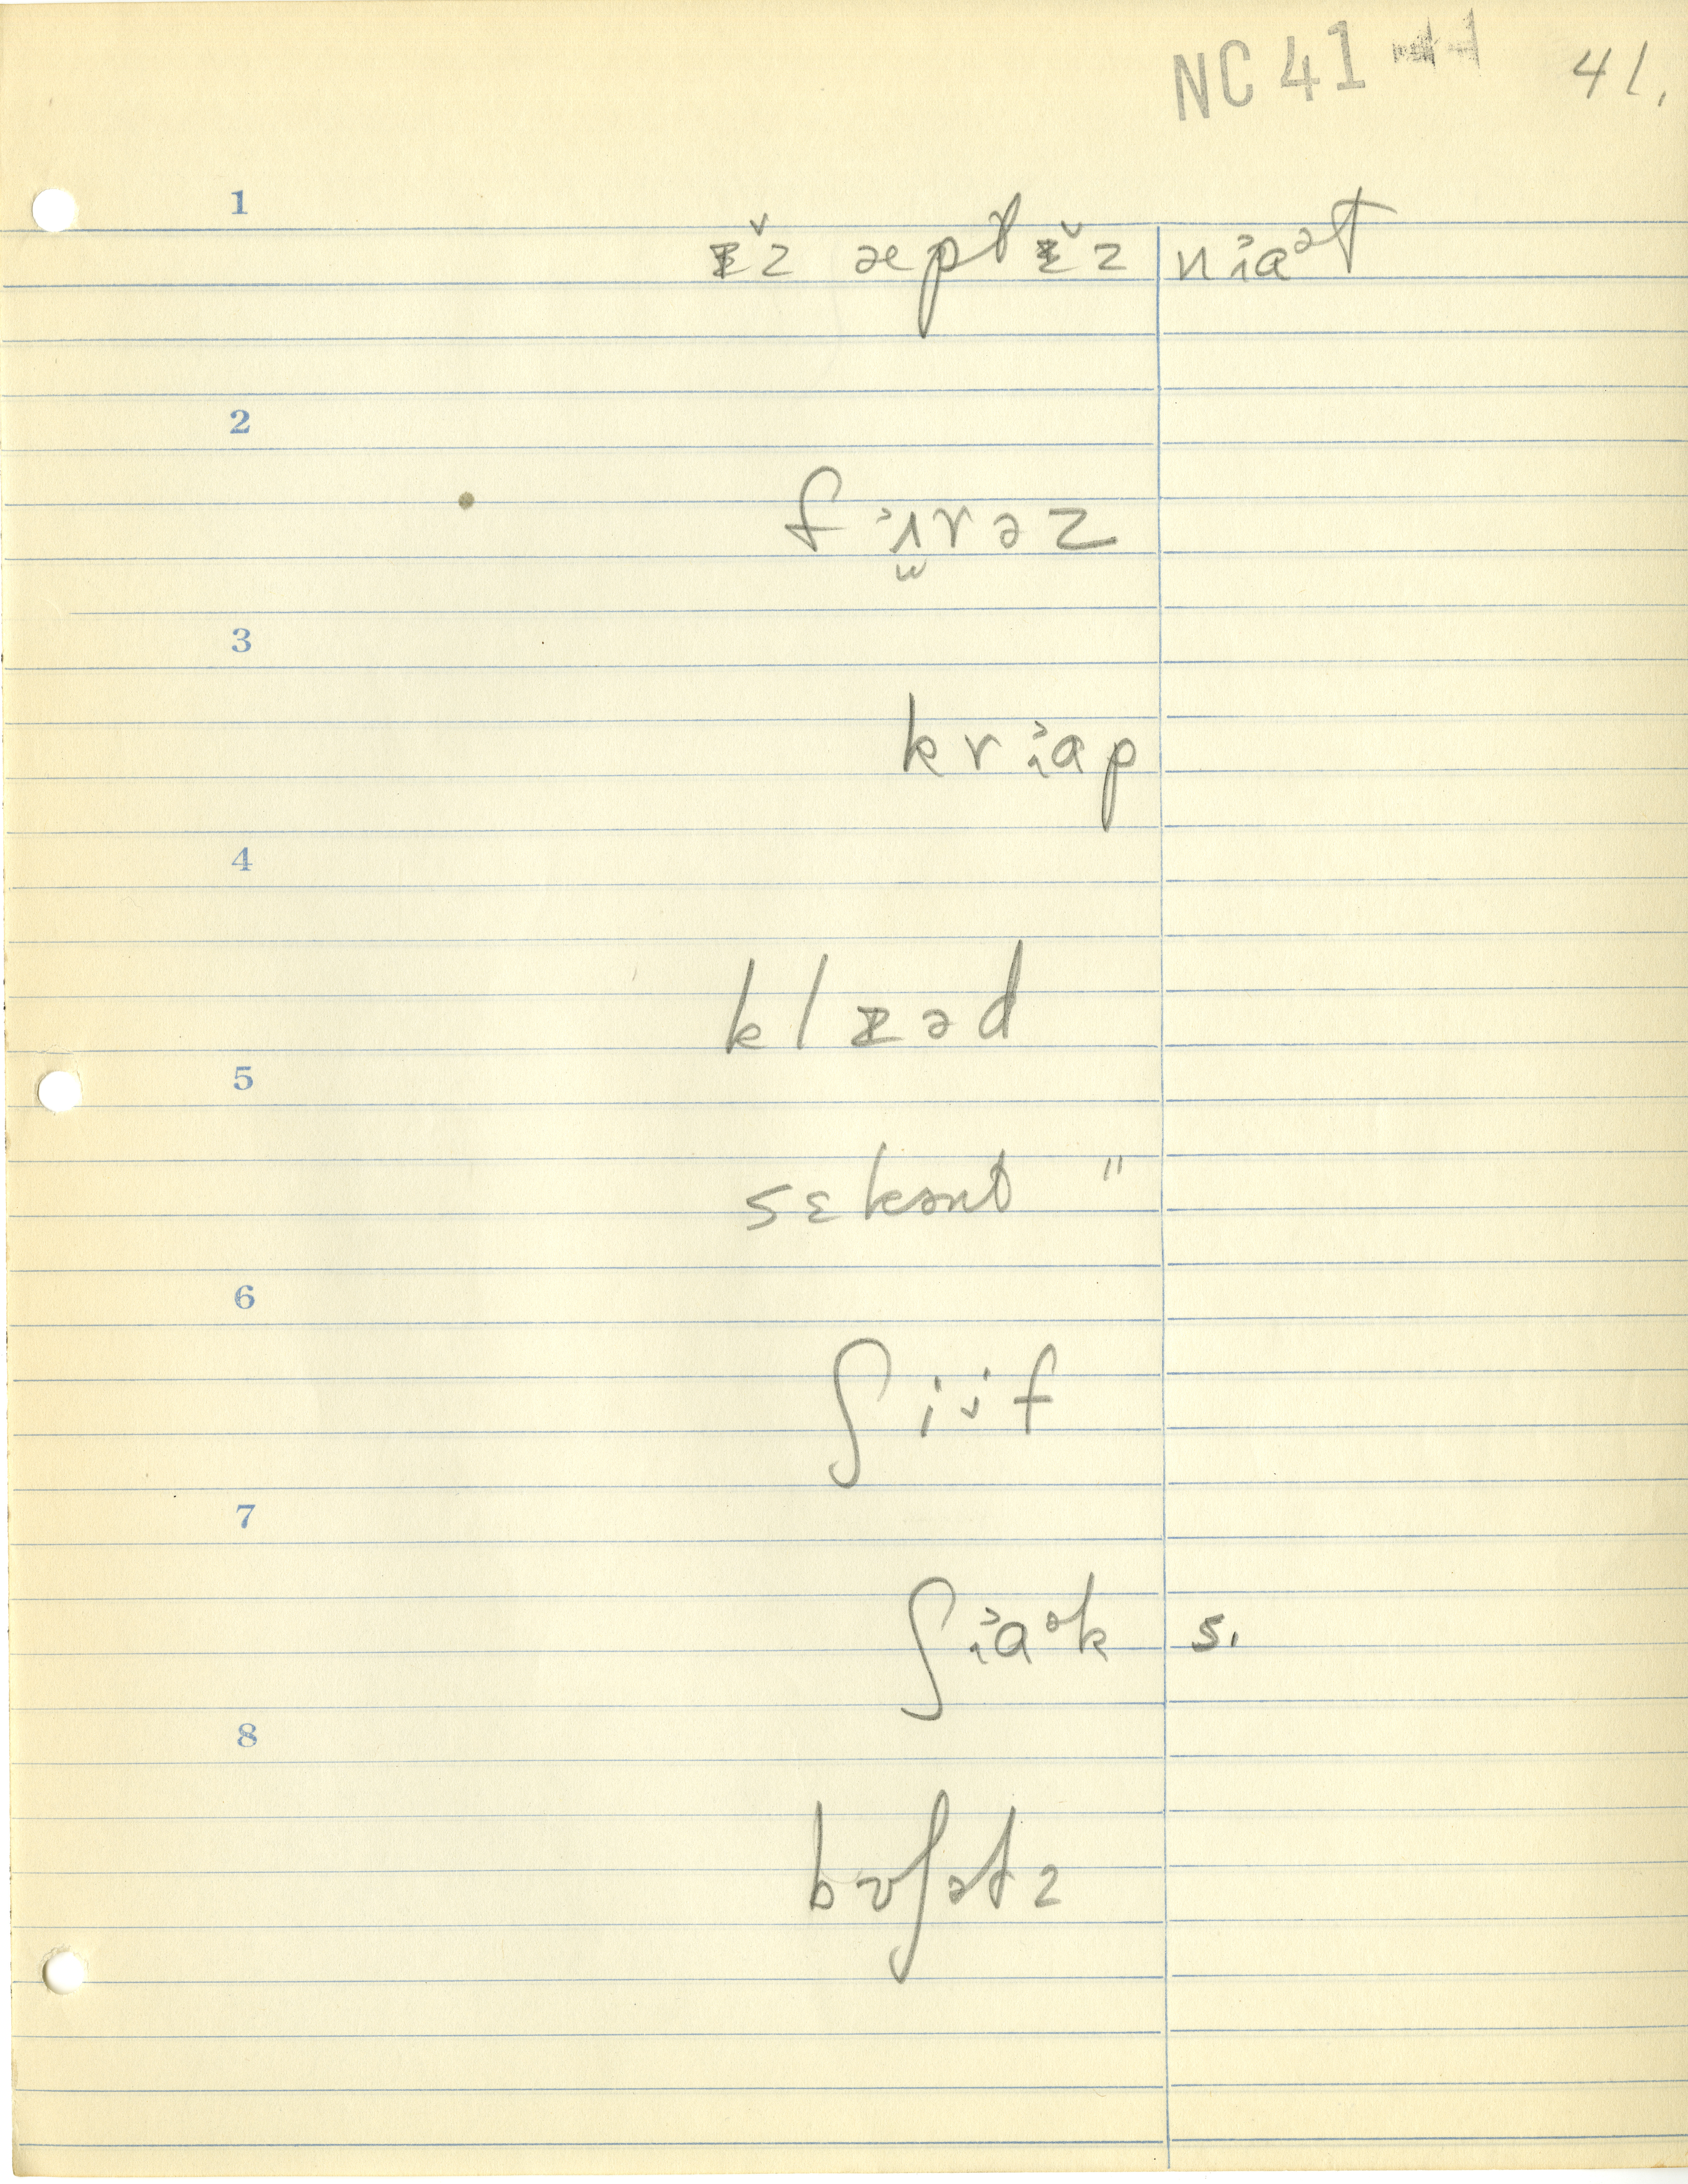 NC 41 41.
1
ɪ̌z æpt ɪ̌z niaət
2
fɜrəz
3
kriap
4
klɪəd
5
sɛkənt "
6
ʃiif
7
ʃiaək s.
8
bʊʃətz